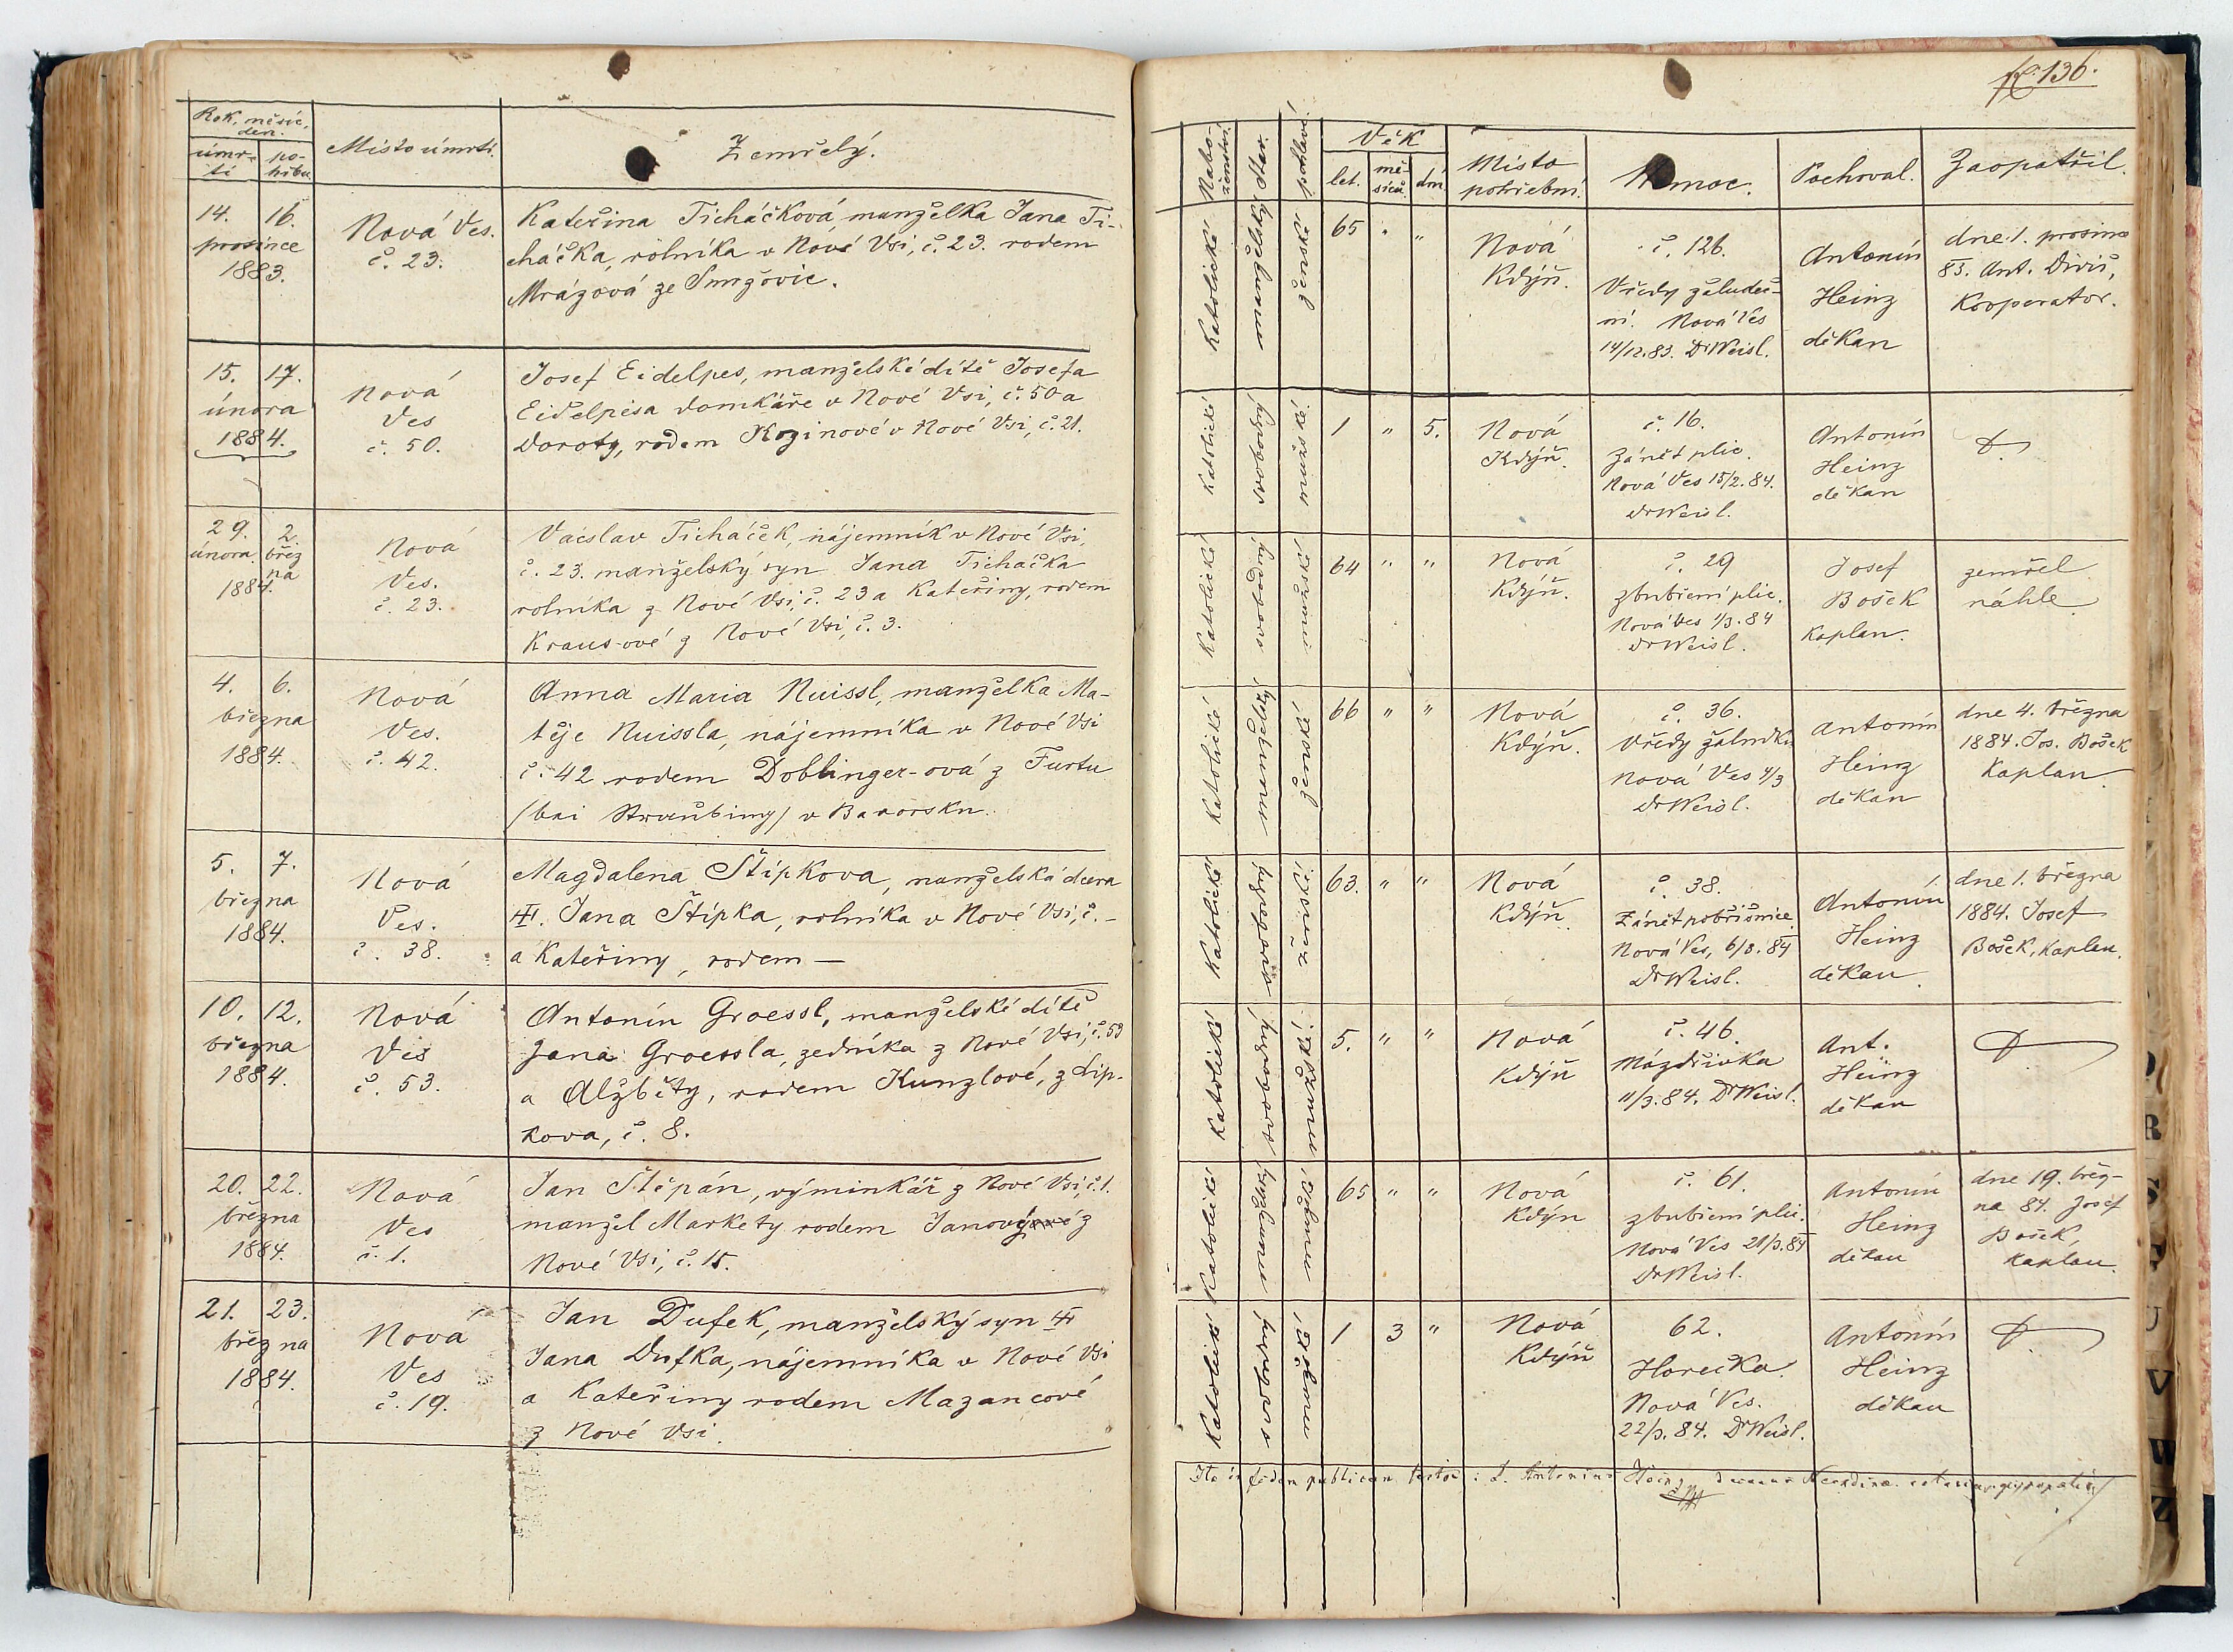 Rok, měsíc,
den.
úmr-
tí
po-
hřbu
Místo úmrtí.
Zemřelý.
14. 16.
prosince
1883.
Nová Ves.
č. 23.
Kateřina Ticháčková, manželka Jana Ti-
cháčka, rolníka v Nové Vsi, č. 23. rodem
Mrázová ze Smržovic.
15. 17.
února
1884.
Nová
Ves
č. 50.
Josef Eidelpes, manželské dítě Josefa
Eidelpesa domkáře v Nové Vsi, č. 50 a
Doroty, rodem Kozinové v Nové Vsi, č. 21.
29. 2.
února břez
na
1884.
Nová
Ves.
č. 23.
Vácslav Ticháček, nájemník v Nové Vsi,
č. 23. manželský syn Jana Ticháčka
rolníka z Nové Vsi, č. 23 a Kateřiny, rodem
Kraus-ové z Nové Vsi, č. 3.
4. 6.
března
1884.
Nová
Ves.
č. 42.
Anna Maria Nuissl, manželka Ma-
těje Nuissla, nájemníka v Nové Vsi
č. 42 rodem Doblinger-ová z Furtu
/bei Straubing/ v Bavorsku.
5. 7.
března
1884.
Nová
Ves.
č. 38.
Magdalena Štípkova, manželská dcera
Jana Štípka, rolníka v Nové Vsi, č. –
a Kateřiny, rodem —
10. 12.
března
1884.
Nová
Ves
č. 53.
Antonín Groessl, manželské dítě
Jana Groessla, zedníka z Nové Vsi, č. 53
a Alžběty, rodem Kunzlové, z Lip-
kova, č. 8.
20. 22.
března
1884.
Nová
Ves
č. 1.
Jan Štěpán, výminkář z Nové Vsi, č. 1.
manžel Markety rodem Janový z
Nové Vsi, č. 15.
21. 23.
března
1884.
Nová
Ves
č. 19.
Jan Dufek, manželský syn
Jana Dufka, nájemníka v Nové Vsi
a Kateřiny rodem Mazancové
z Nové Vsi.
136.
Nabo-
ženství.
Stav.
pohlaví.
Věk
let.
mě-
síců
dní.
Místo
pohřební.
Nemoc.
Pochoval.
Zaopatřil.
Katolické
manželský
ženské
65 " "
Nová
Kdýň.
č. 126.
Vředy žaludeč-
ní. Nová Ves
14/12.83. Dr Weisl.
Antonín
Heinz
děkan
dne 1. prosince
83. Ant. Diviš,
Kooperator.
Katolické
svobodný
mužské
1 " 5.
Nová
Kdýň.
č. 16.
Zánět plic.
Nová Ves 15/2.84.
Dr Weisl.
Antonín
Heinz
děkan
Katolické
svobodný
mužské
64 " "
Nová
Kdýň.
č. 29
zbubření plic.
Nová Ves 1/3.84
Dr Weisl.
Josef
Bošek
Kaplan.
zemřel
náhle.
Katolické
manželský
ženské
66 " "
Nová
Kdýň.
č. 36.
Vředy žaludku
Nová Ves 4/3
Dr Weisl.
Antonín
Heinz
děkan
dne 4. března
1884. Jos. Bošek
Kaplan
Katolické
svobodný
ženské
63. " "
Nová
Kdýň.
č. 38.
Zánět pobřišnice
Nová Ves, 6/3.84
Dr Weisl.
Antonín
Heinz
děkan.
dne 1. března
1884. Josef
Bošek, Kaplan.
Katolické
svobodný
mužské
5. " "
Nová
Kdýň
č. 46.
Mázdřivka
11/3.84. Dr Weisl.
Ant.
Heinz
děkan
Katolické
manželský
mužské
65 " "
Nová
Kdýn
č. 61.
zbubření plic.
Nová Ves 21/3.84
Dr Weisl.
Antonín
Heinz
děkan
dne 19. břez-
na 84. Josef
Bošek,
Kaplan.
Katolické
svobodný
mužské
1 3 "
Nová
Kdýň
62.
Horečka.
Nová Ves.
22/3.84. Dr Weisl.
Antonín
Heinz
děkan
Ita in fidem publicam testor: Antonius Heinz
R
S
U
V
W
Z